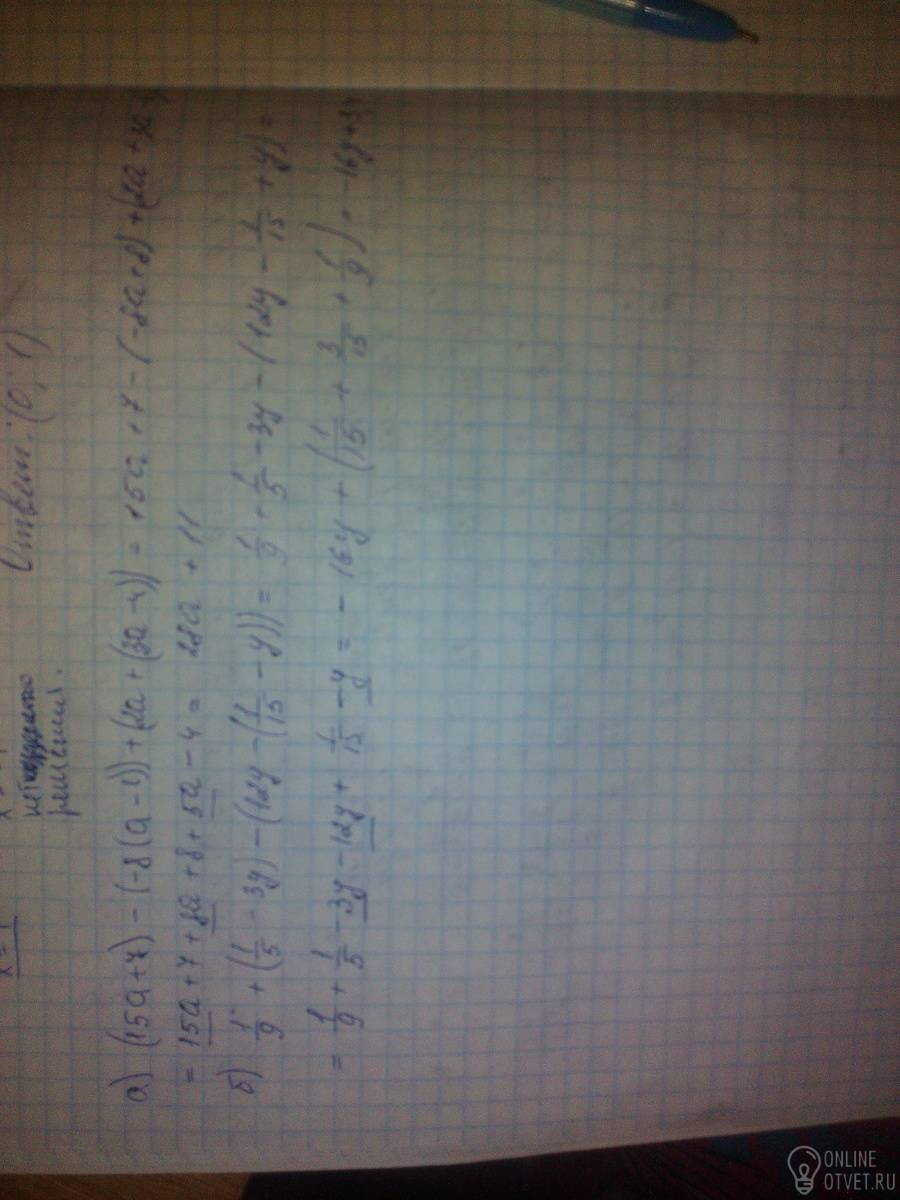 x = 1
нет решений.
Ответ: (0; 1)
а) (15a+7) - (-8(a-1)) + (2a + (3a-4)) = 15a + 7 - (-8a+8) + (2a + 3a
= 15a + 7 + 8a + 8 + 5a - 4 = 28a + 11
б) 1/9 + (1/5 - 3y) - (12y - (1/15 - y)) = 1/9 + 1/5 - 3y - (12y - 1/15 + y) =
= 1/9 + 1/5 - 3y - 12y + 1/15 - y = - 16y + (1/15 + 3/15 + 1/9) = -16y +
ONLINE
OTVET.RU